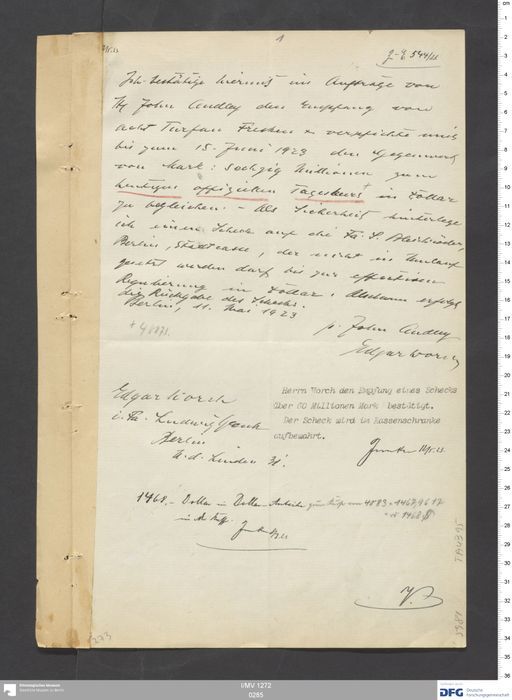 1
Ich bestätige hiermit im Auftrage von
John Audley den Empfang von
acht Turfan Fresken & verpflichte mich
bis zum 15. Juni 1923 den Gegenwert
von Mark: Sechzig Millionen zum
heutigen offiziellen Tageskurs in Dollar
zu begleichen. – Als Sicherheit hinterlege
ich einen Scheck auf die Fa. S. Bleichröder,
Berlin, Stadtcasse, der nicht in Umlauf
gesetzt werden darf bis zur effektiven
Regulierung in Dollar. Alsdann erfolgt
die Rückgabe des Schecks.
Berlin, 11. Mai 1923
p. John Audley
Edgar Worch
Edgar Worch
i. Fa. Ludwig Glenk
Berlin
U. d. Linden 31.
Herrn Worch den Empfang eines Schecks
über 60 Millionen Mark bestätigt.
Der Scheck wird im Kassenschranke
aufbewahrt.
1468.- Dollar in Dollar-
TA 4395
5981
273
Ethnologisches Museum
Staatliche Museen zu Berlin
I/MV 1272
0265
DFG
Deutsche
Forschungsgemeinschaft